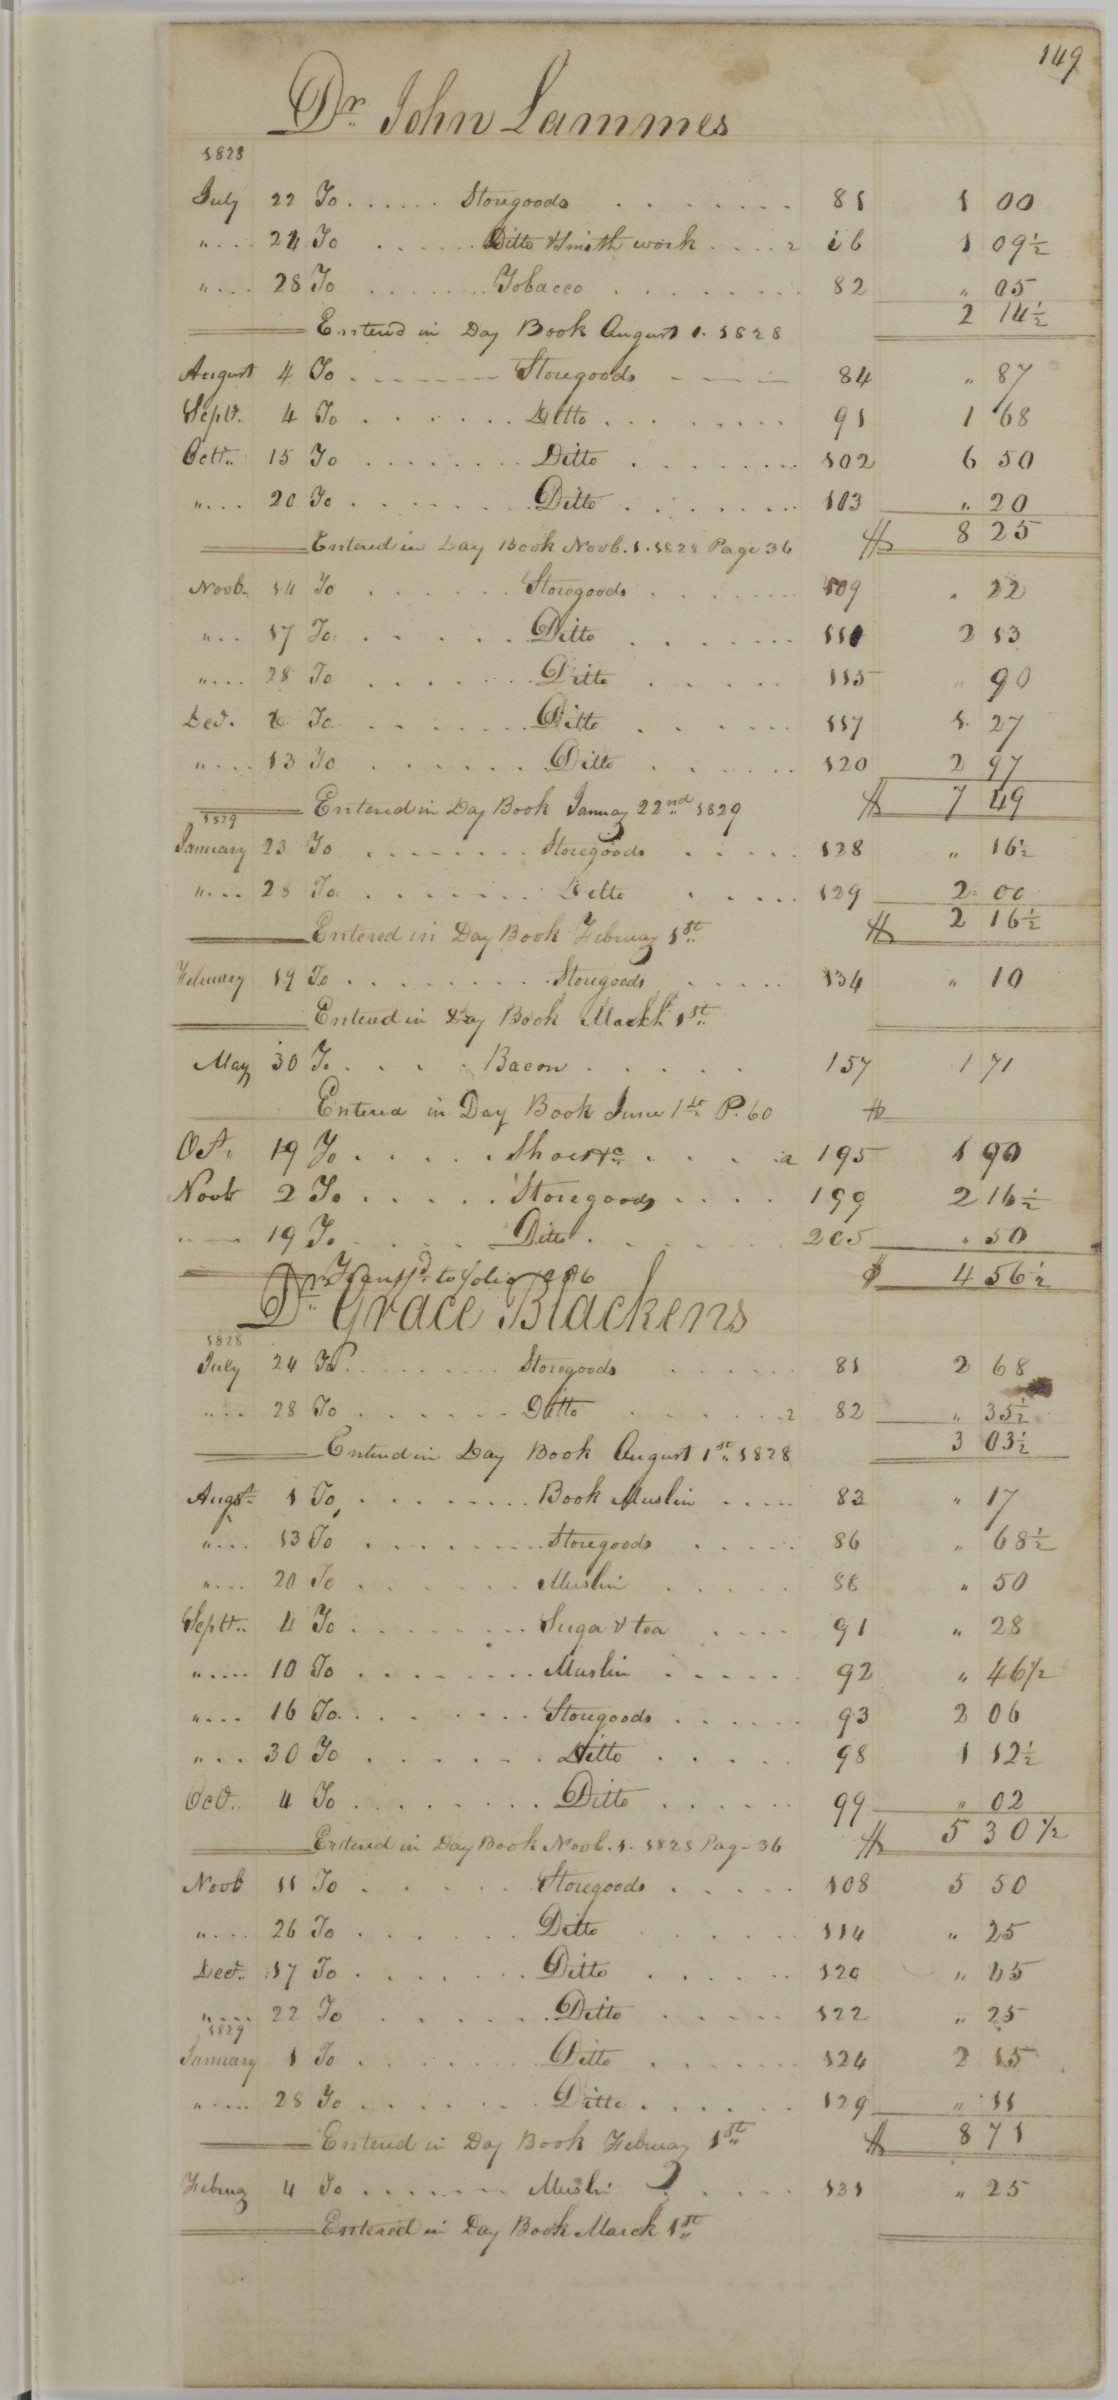 149
Dr. John Lammes
1828
July 22 To ...... Storegoods ........ 81 1 00
".... 24 To ...... Ditto & Smith work .... 2 ib 1 09½
".... 28 To ....... Tobacco ......... 82 " 05
2 14½
Entered in Day Book August 1. 1828
August 4 To ------- Storegoods ---- 84 " 87
Septr.. 4 To ...... Ditto ......... 91 1 68
Octr.. 15 To ........ Ditto ........ 102 6 50
".... 20 To ........ Ditto ........ 103 " 20
Entered in Day Book Novb. 1. 1828 Page 36 $ 8 25
Novb. 14 To ...... Storegoods ....... 109 " 22
"... 17 To ...... Ditto ....... 110 2 13
".... 28 To ....... Ditto ..... 115 " 90
Decr. 6 To ....... Ditto ..... 117 1. 27
".... 13 To ...... Ditto ...... 120 2 97
Entered in Day Book Januay 22nd 1829 $ 7 49
1829
January 23 To ........ Storegoods ..... 128 " 16½
".... 28 To ....... Ditto .... 129 2 00
Entered in Day Book Februay 1st $ 2 16½
February 19 To ......... Storegoods ..... 134 " 10
Entered in Day Book March 1st
May 30 To ..... Bacon ..... 157 1 71
Entered in Day Book June 1st P. 60 $
Oct. 19 To ..... Shoes &c .... a 195 1 90
Novb 2 To ..... Storegoods .... 199 2 16½
" — 19 To .... Ditto ...... 205 " 50
Transfd. to folio $ 4 56½
Dr. Grace Blackens
1828
July 24 To ........ Storegoods ...... 81 2 68
".... 28 To ...... Ditto ...... 2 82 " 35½
3 03½
Entered in Day Book August 1st 1828
Augst. 1 To ........ Book Muslin ..... 83 " 17
".... 13 To ........ Storegoods ..... 86 " 68½
".... 20 To ....... Muslin ..... 88 " 50
Septr.. 4 To ........ Suga & tea .... 91 " 28
"..... 10 To ........ Muslin ...... 92 " 46½
".... 16 To ....... Storegoods ...... 93 2 06
"... 30 To ....... Ditto ..... 98 1 12½
Oct.. 4 To ........ Ditto ...... 99 " 02
Entered in Day Book Novb. 1. 1828 Page 36 $ 5 30½
Novb 11 To ...... Storegoods ..... 108 5 50
".... 26 To ...... Ditto ...... 114 " 25
Decr.. 17 To ....... Ditto ...... 120 " 45
".... 22 To ...... Ditto ..... 122 " 25
1829
January 1 To ....... Ditto ....... 124 2 15
"..... 28 To ....... Ditto ...... 129 " 11
Entered in Day Book Februay 1st $ 8 71
Februay 4 To ....... Muslin ..... 131 " 25
Entered in Day Book March 1st